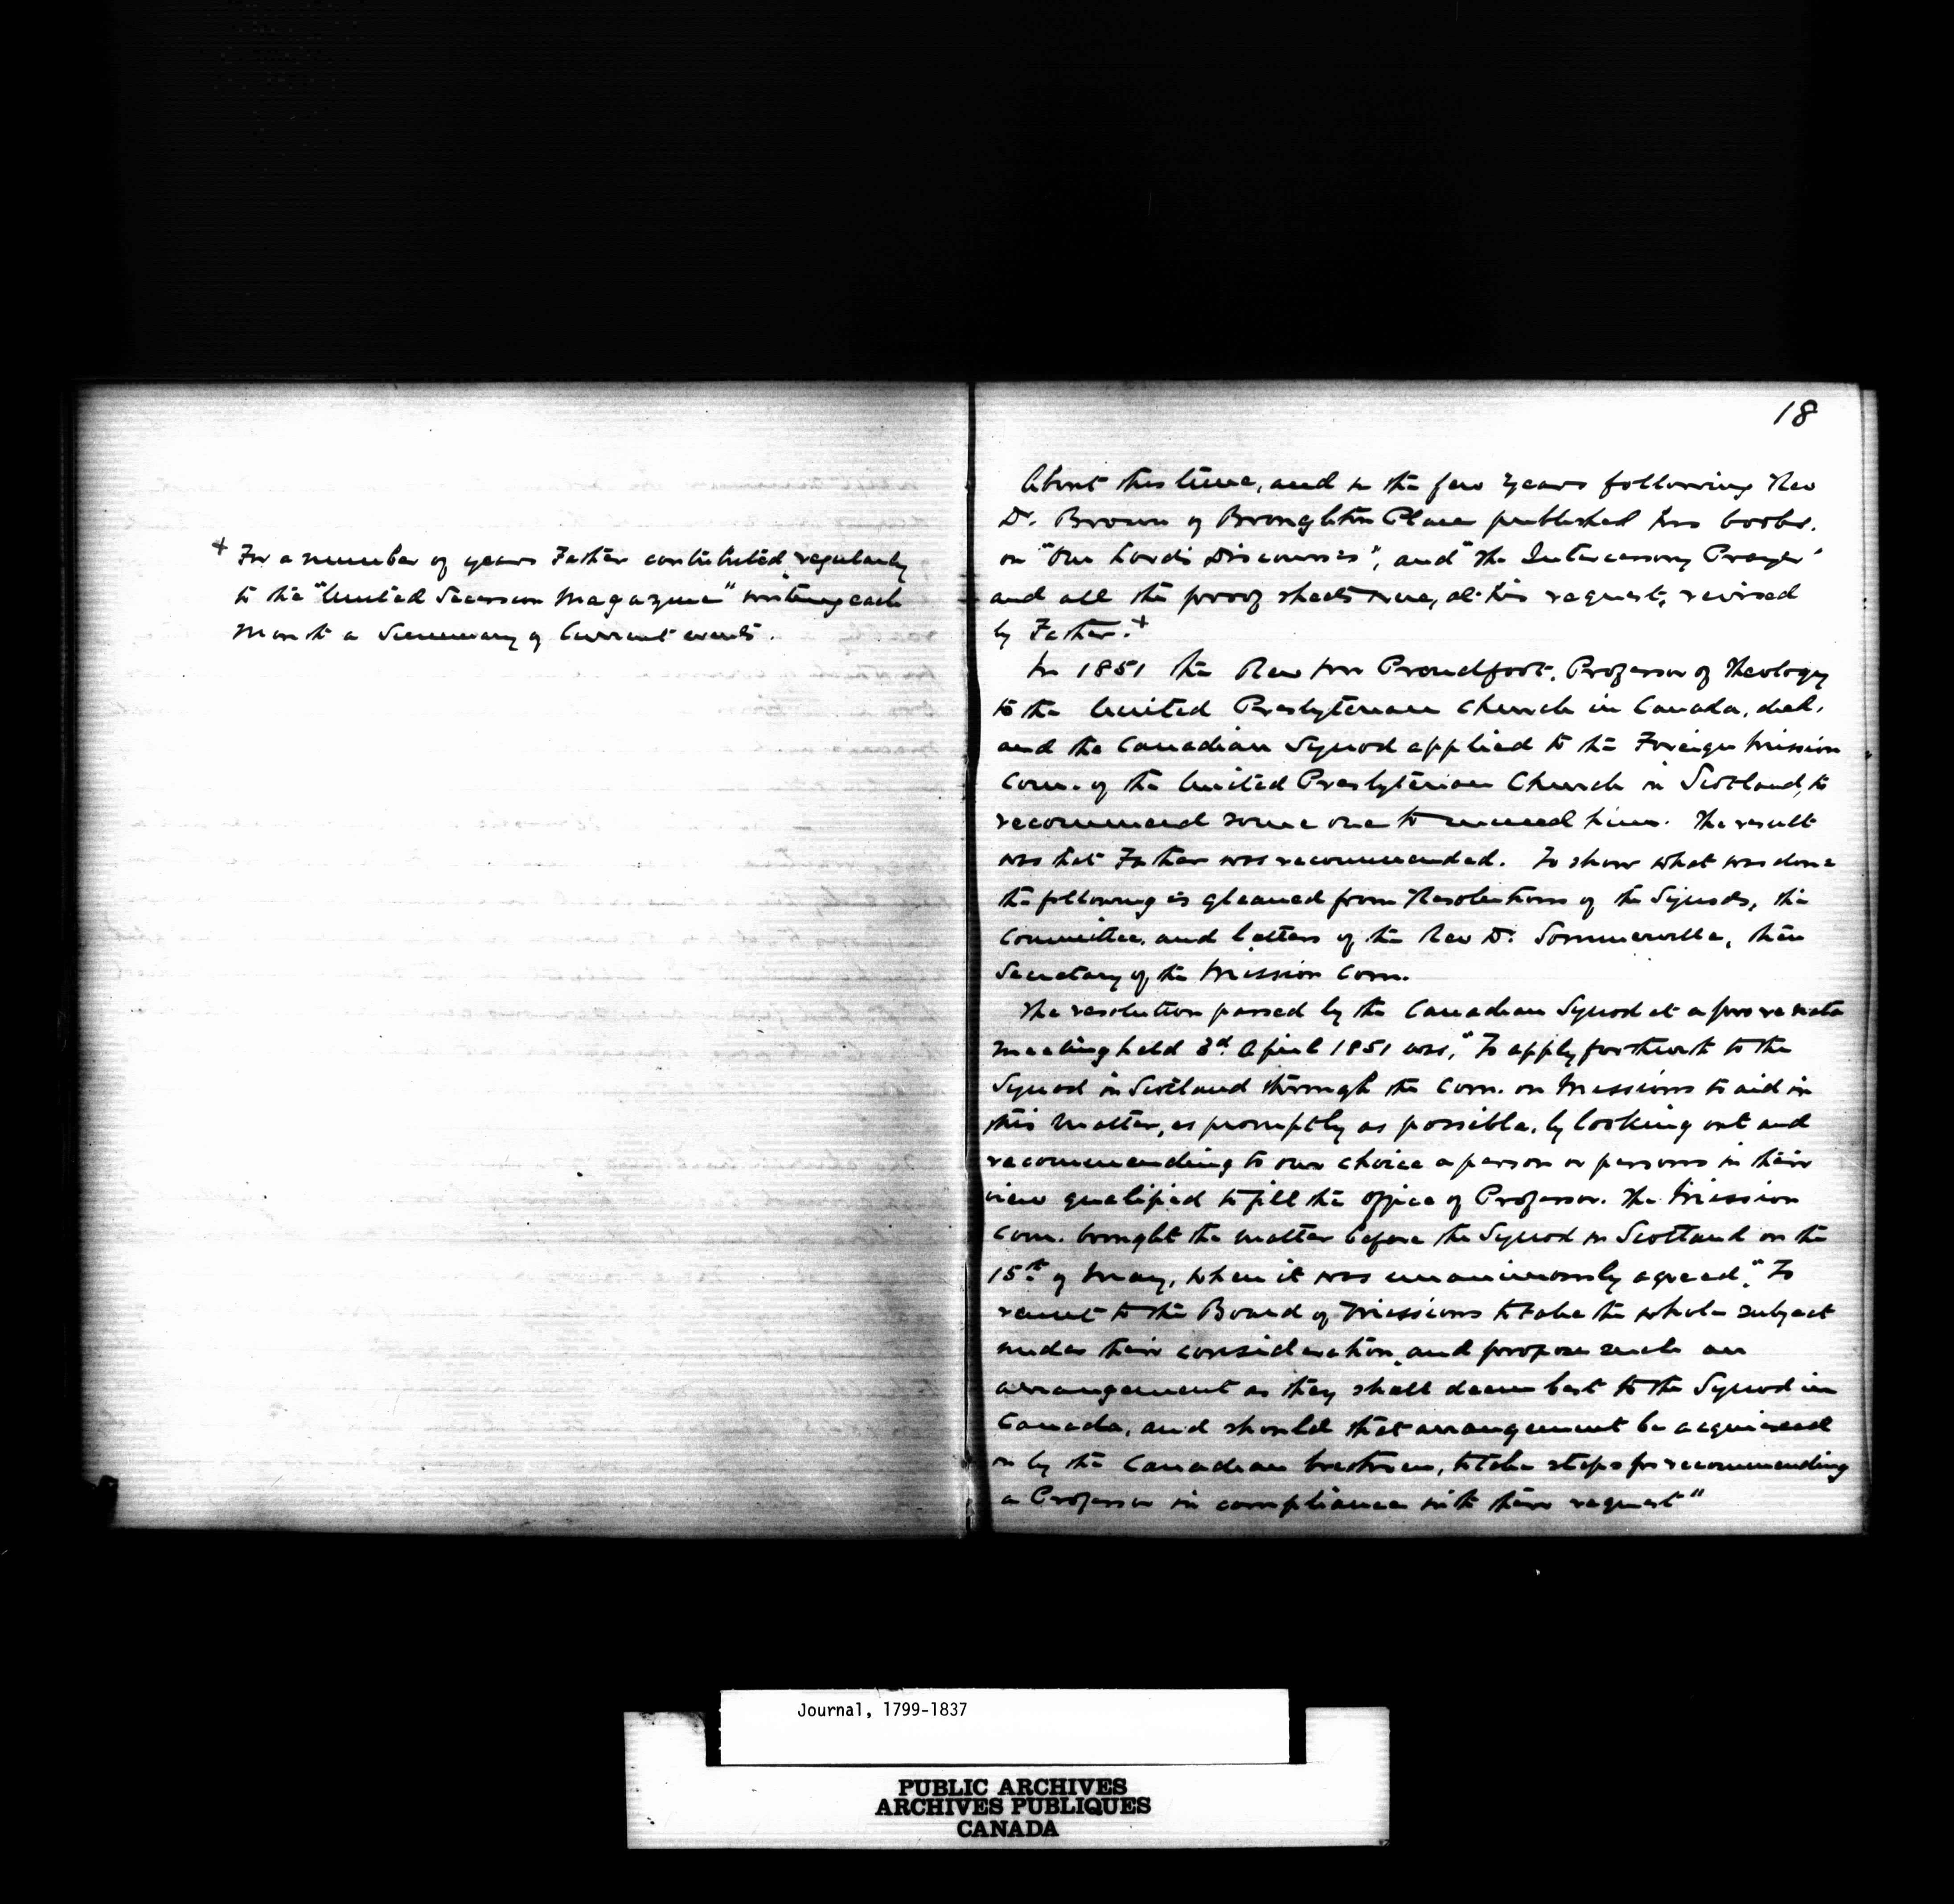 + For a number of years Father contributed regularly
to the "United Secession Magazine" writing each
Month a Summary of Current events.
18
About this time, and in the few years following Rev
Dr. Brown of Broughton Place published his books.
on "Our Lord's Discourses", and "The Intercessory Prayer"
and all the proof sheets were, at his request, revised
by Father.+
In 1851 the Rev Wm Proudfoot, Professor of Theology
to the United Presbyterian Church in Canada, died,
and the Canadian Synod applied to the Foreign Mission
Com. of the United Presbyterian Church in Scotland, to
recommend some one to succeed him. The result
was that Father was recommended. To show what was done
the following is gleaned from Resolutions of the Synods, the
Committee, and Letters of the Rev Dr. Sommerville, then
Secretary of the Mission Com.
The resolution passed by the Canadian Synod at a pro re nata
meeting held 3d April 1851 was, "To apply forthwith to the
Synod in Scotland through the Com. on Missions to aid in
this matter, as promptly as possible, by looking out and
recommending to our choice a person or persons in their
view qualified to fill the office of Professor. The Mission
Com. brought the matter before the Synod in Scotland on the
15th of May, when it was unanimously agreed, "To
remit to the Board of Missions to take the whole subject
under their consideration, and propose such an
arrangement as they shall deem best to the Synod in
Canada, and should that arrangement be acquiesced
in by the Canadian brethren, to take steps for recommending
a Professor in compliance with their request"
Journal, 1799-1837
PUBLIC ARCHIVES
ARCHIVES PUBLIQUES
CANADA